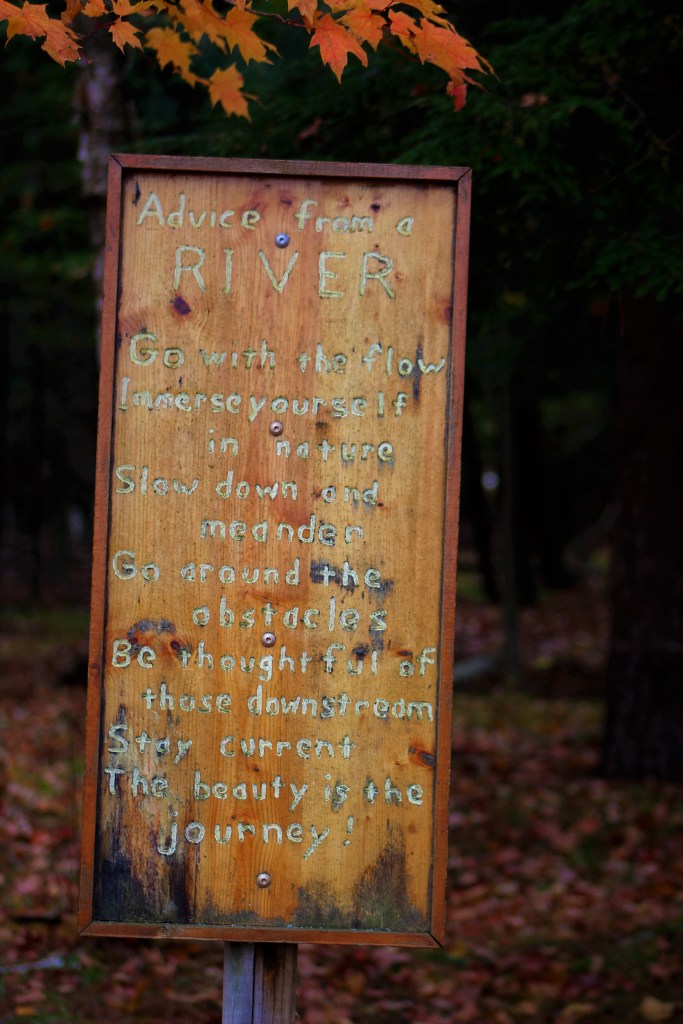 Advice from a
RIVER
Go with the flow
Immerse yourself
in nature
Slow down and
meander
Go around the
obstacles
Be thoughtful of
those downstream
Stay current
The beauty is the
journey!